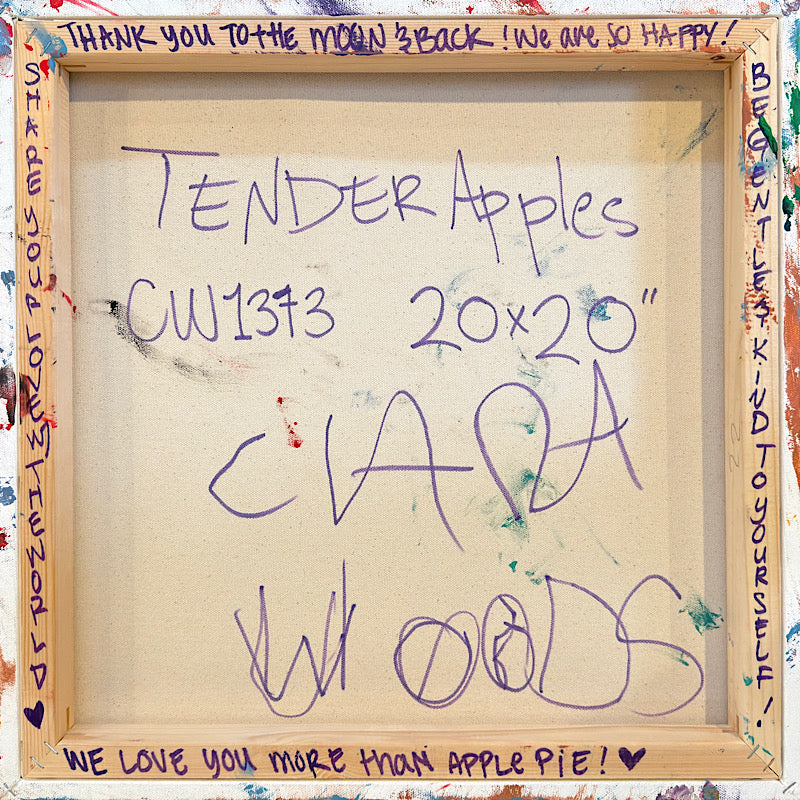 THANK YOU TO tHE MOON & BACK! We are SO HAPPY!
SHARE YOUR LOVE W/ THE WORLD ♥
BE GENTLE & KIND TO YOURSELF!
TENDER Apples
CW1373 20x20"
CLARA
WOODS
WE LOVE YOU MORE than APPLE PIE! ♥